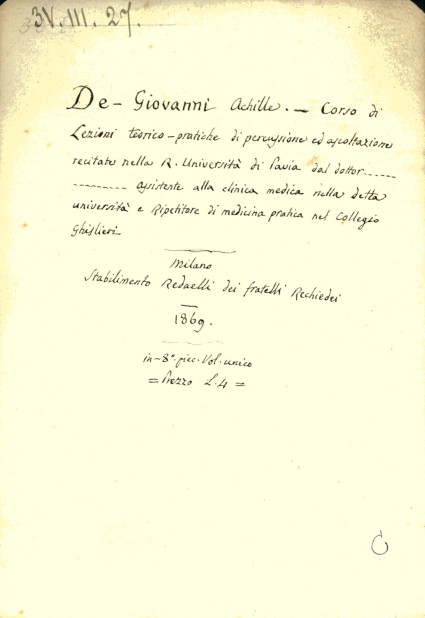 3V.III.27.
De-Giovanni Achille. - Corso di
Lezioni teorico-pratiche di percussione ed ascoltazione
recitate nella R. Università di Pavia dal dottor ......
.......... assistente alla clinica medica nella detta
università e Ripetitore di medicina pratica nel Collegio
Ghislieri
Milano
Stabilimento Redaelli dei fratelli Rechiedei
1869.
in-8º. picc. Vol. unico
= Prezzo L. 4 =